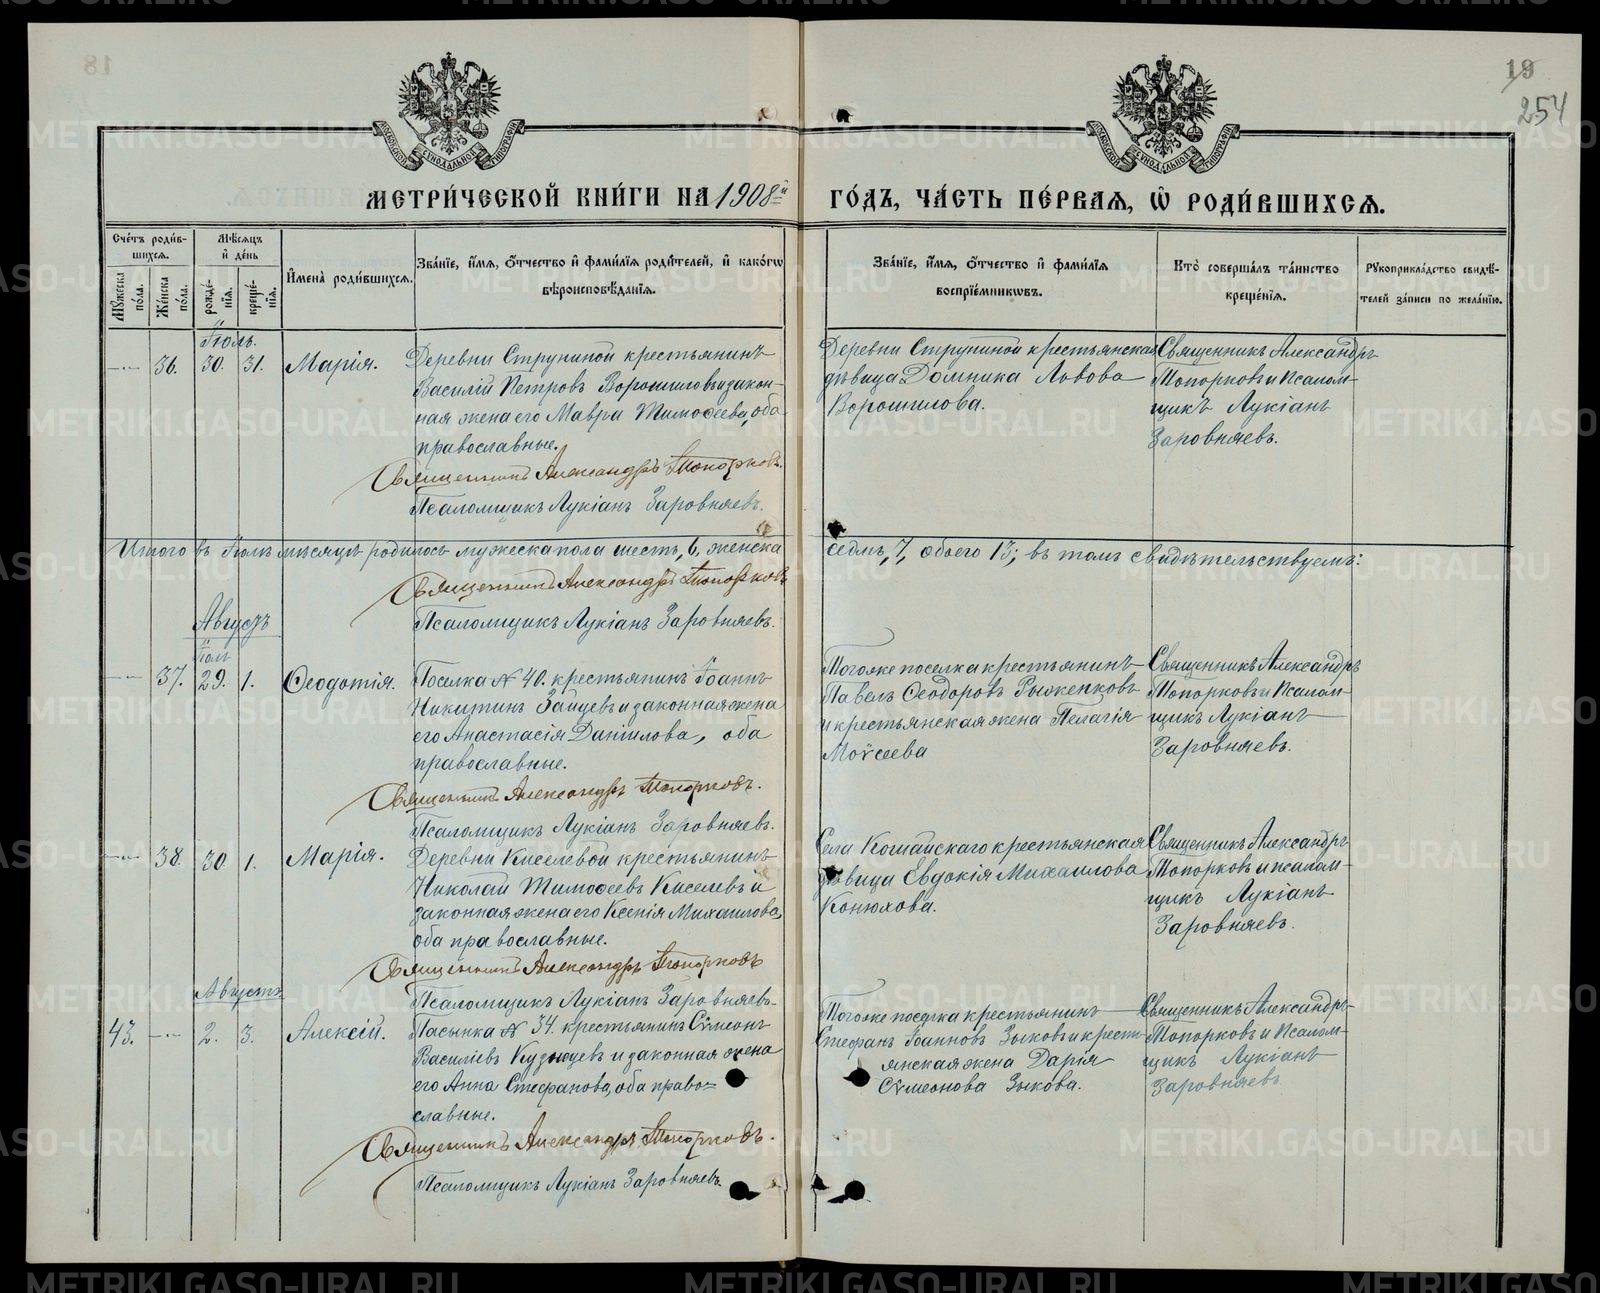 18
19
254
МОСКОВСКОЙ СѴНОДАЛЬНОЙ ТИПОГРАФІИ
МОСКОВСКОЙ СѴНОДАЛЬНОЙ ТИПОГРАФІИ
МЕТРИ́ЧЕСКОЙ КНИ́ГИ НА 1908й ГО́ДЪ, ЧА́СТЬ ПЕ́РВАѦ, Ѡ҆ РОДИ́ВШИХСѦ.
Сче́тъ роди́в-
шихсѧ.
Мꙋ́жеска по́ла.
Же́нска по́ла.
Мѣ́сѧцъ
и҆ де́нь
рожде́-
нїѧ.
креще́-
нїѧ.
И҆мена̀ роди́вшихсѧ.
Зва́нїе, и҆́мѧ, ѻ҆́тчество и҆ фами́лїѧ роди́телей, и҆ како́гѡ
вѣроисповѣ́данїѧ.
Зва́нїе, и҆́мѧ, ѻ҆́тчество и҆ фами́лїѧ
воспрїе́мникѡвъ.
Кто̀ соверша́лъ та́инство
креще́нїѧ.
Рꙋкоприкла́дство свидѣ́-
телей за́писи по жела́нїю.
Іюль.
— 36. 30. 31. Марія.
Деревни Струниной крестьянинъ
Василій Петровъ Ворошиловъ и закон-
ная жена его Мавра Тимоѳеева, оба
православные.
Священникъ Александръ Топорковъ.
Псаломщикъ Лукіанъ Заровняевъ.
Деревни Струниной крестьянская
дѣвица Домника Львова
Ворошилова.
Священникъ Александръ
Топорковъ и Псалом-
щикъ Лукіанъ
Заровняевъ.
Итого въ Іюлѣ мѣсяцѣ родилось мужеска пола шесть, 6, женска седмь, 7, обоего 13; въ томъ свидѣтельствуемъ:
Священникъ Александръ Топорковъ
Псаломщикъ Лукіанъ Заровняевъ.
Августъ
Іюль
— 37. 29. 1. Ѳеодотія.
Поселка № 40. крестьянинъ Іоаннъ
Никитинъ Зайцевъ и законная жена
его Анастасія Даніилова, оба
православные.
Священникъ Александръ Топорковъ.
Псаломщикъ Лукіанъ Заровняевъ.
Тогоже поселка крестьянинъ
Павелъ Ѳеодоровъ Рыженковъ
и крестьянская жена Пелагія
Моѵсеева
Священникъ Александръ
Топорковъ и Псалом-
щикъ Лукіанъ
Заровняевъ.
— 38. 30 1. Марія.
Деревни Киселевой крестьянинъ
Николай Тимоѳеевъ Киселевъ и
законная жена его Ксенія Михаилова,
оба православные.
Священникъ Александръ Топорковъ
Псаломщикъ Лукіанъ Заровняевъ.
Села Кошайскаго крестьянская
дѣвица Евдокія Михаилова
Конюхова.
Священникъ Александръ
Топорковъ и псалом-
щикъ Лукіанъ
Заровняевъ.
Августъ
43. — 2. 3. Алексій.
Пасынка № 34. крестьянинъ Сѵмеонъ
Василіевъ Кузнецевъ и законная жена
его Анна Стефанова, оба право-
славные.
Священникъ Александръ Топорковъ.
Псаломщикъ Лукіанъ Заровняевъ.
Тогоже поселка крестьянинъ
Стефанъ Іоанновъ Зыковъ и кресть-
янская жена Дарія
Сѵмеонова Зыкова.
Священникъ Александръ
Топорковъ и Псалом-
щикъ Лукіанъ
Заровняевъ
METRIKI.GASO-URAL.RU